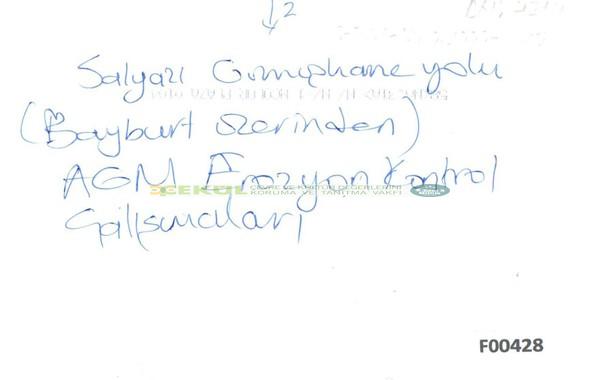 2
Salyazı Gümüşhane yolu
(Bayburt üzerinden)
AGM Erozyon Kontrol
Çalışmaları
ÇEKÜL ÇEVRE VE KÜLTÜR DEĞERLERİNİ
KORUMA VE TANITMA VAKFI
F00428